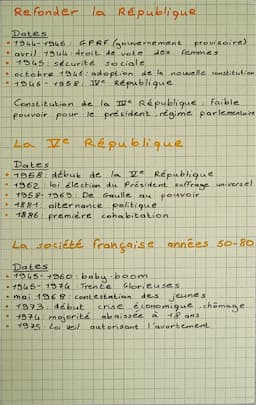 Refonder la République
Dates
• 1944-1946 : G.P.R.F (gouvernement provisoire)
• avril 1944 : droit de vote des femmes
• 1945 : sécurité sociale
• octobre 1946 : adoption de la nouvelle constitution
• 1946 - 1958 : IVe République
Constitution de la IVe République : faible
pouvoir pour le président, régime parlementaire
La Ve République
Dates
• 1958 : début de la Ve République
• 1962 : loi élection du Président suffrage universel
• 1958-1969 : De Gaulle au pouvoir
• 1981 : alternance politique
• 1986 : première cohabitation
La société française années 50-80
Dates
• 1945-1960 : baby-boom
• 1945-1974 : Trente Glorieuses
• mai 1968 : contestation des jeunes
• 1973 : début crise économique, chômage
• 1974 : majorité abaissée à 18 ans
• 1975 : Loi Veil autorisant l'avortement